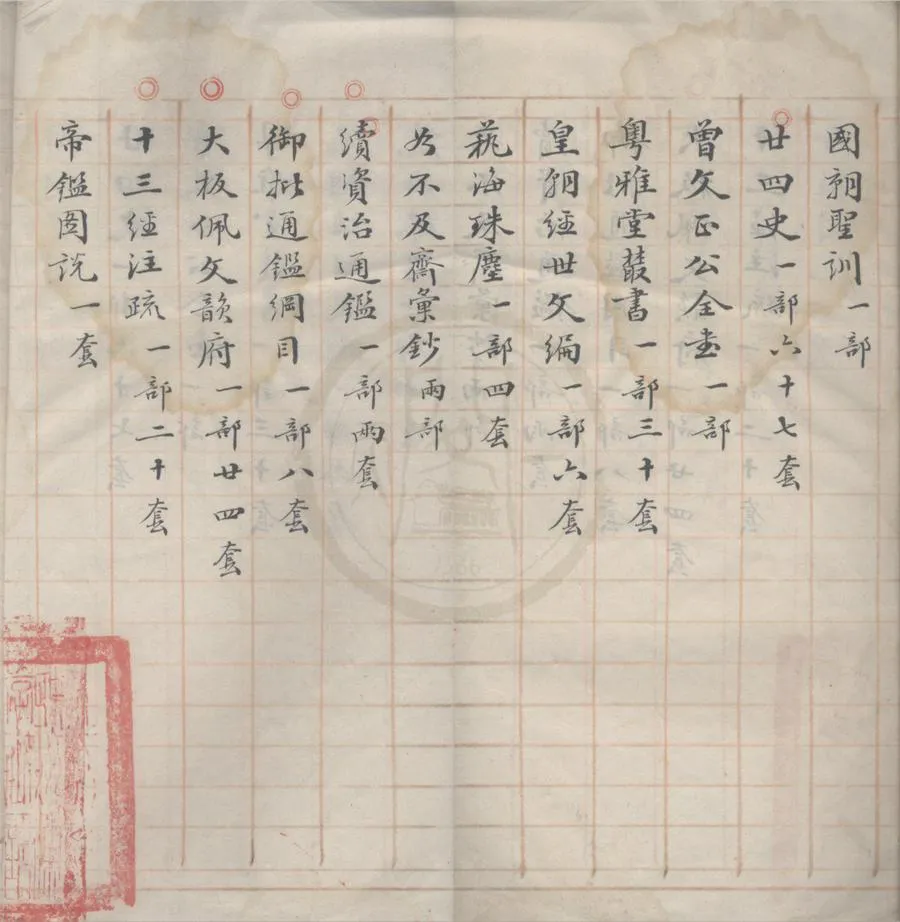 國朝聖訓一部
廿四史一部六十七套
曾文正公全書一部
粵雅堂叢書一部三十套
皇朝經世文編一部六套
藝海珠塵一部四套
知不及齋彙鈔兩部
續資治通鑑一部兩套
御批通鑑綱目一部八套
大板佩文韻府一部廿四套
十三經注疏一部二十套
帝鑑圖說一套